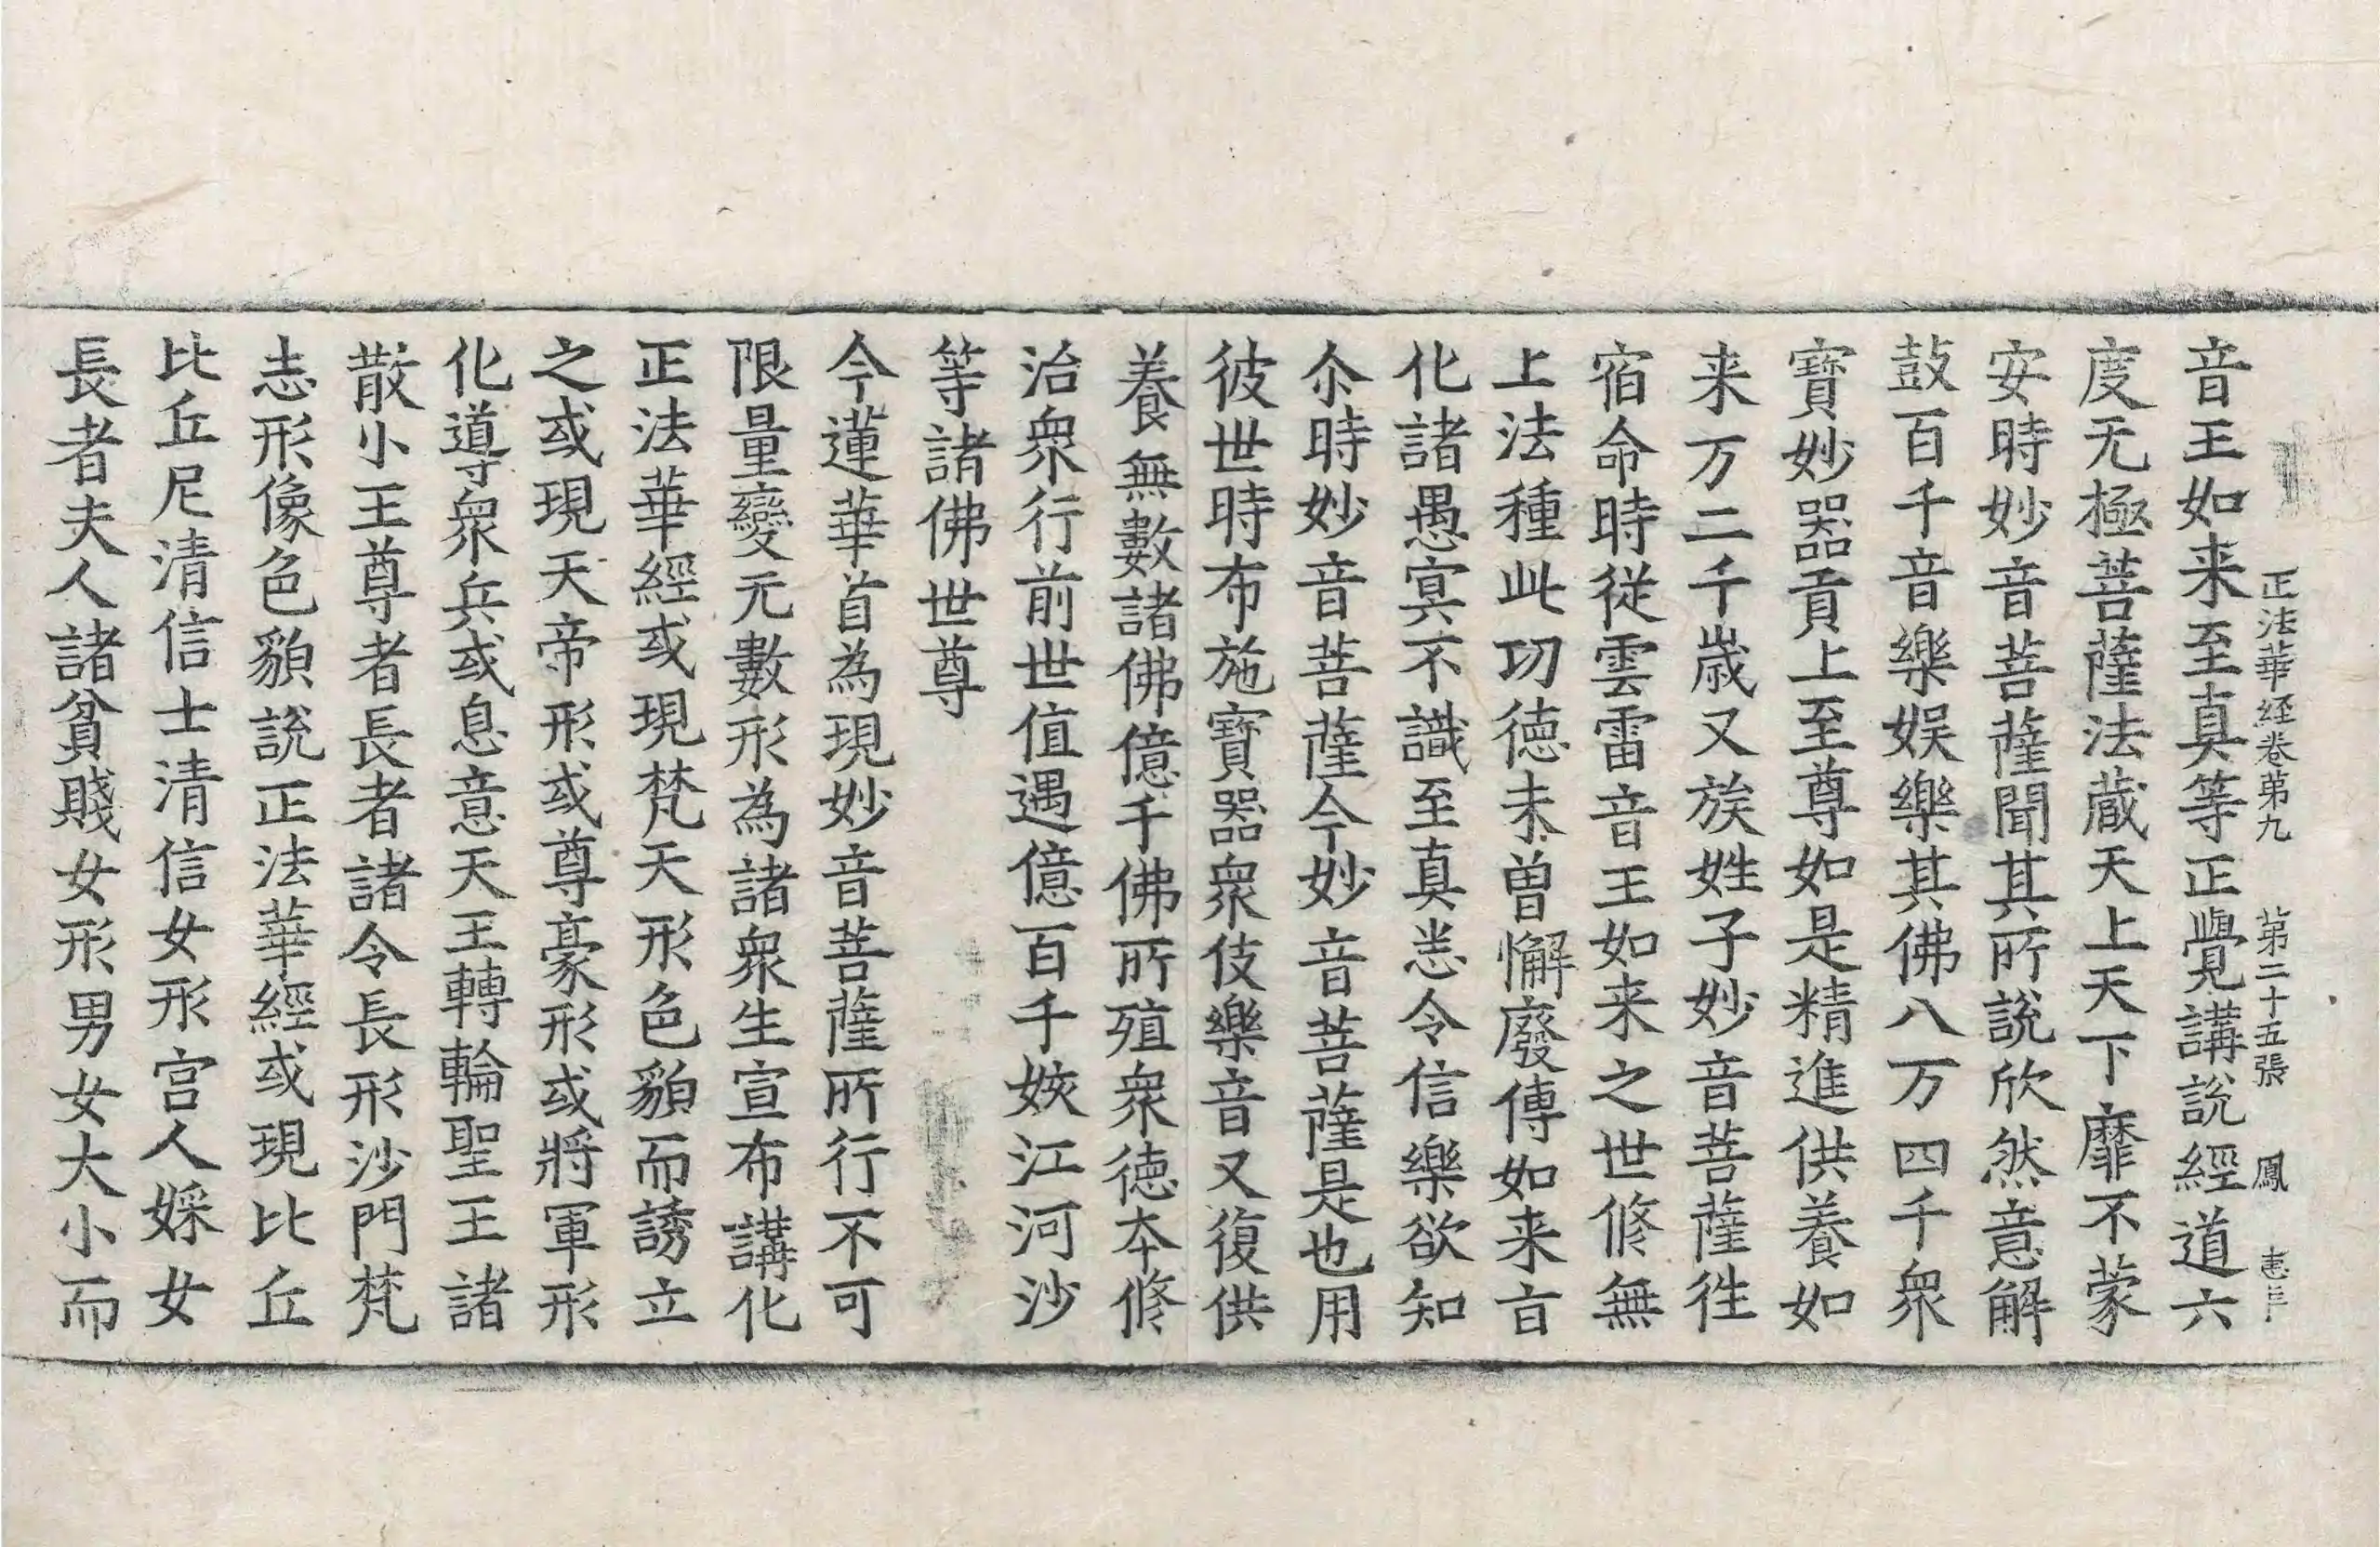 正法華経卷第九　第二十五張　鳳
音王如来至真等正覺講說經道六
度无極菩薩法蔵天上天下靡不蒙
安時妙音菩薩聞其所說欣然意解
鼓百千音樂娱樂其佛八万四千衆
寶妙器貢上至尊如是精進供養如
来万二千歳又族姓子妙音菩薩徃
宿命時從雲雷音王如来之世修無
上法種此功徳未曽懈廢傳如来㫖
化諸愚冥不識至真恙令信樂欲知
尒時妙音菩薩今妙音菩薩是也用
彼世時布施寶器衆伎樂音又復供
養無數諸佛億千佛所殖衆徳夲修
治衆行前世值遇億百千姟江河沙
等諸佛世尊
今蓮華首為現妙音菩薩所行不可
限量變无數形為諸衆生宣布講化
正法華經或現梵天形色貌而誘立
之或現天帝形或尊豪形或將軍形
化導衆兵或息意天王轉輪聖王諸
散小王尊者長者諸令長形沙門梵
志形像色貌說正法華經或現比丘
比丘尼清信士清信女形宫人婇女
長者夫人諸貧賤女形男女大小而